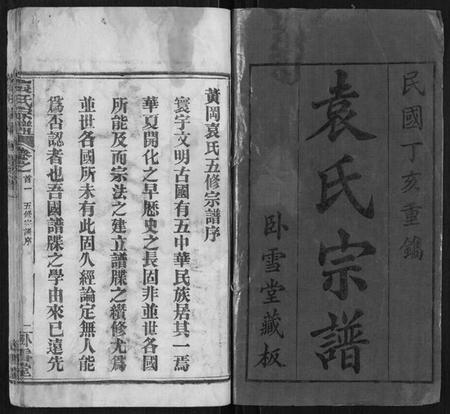 民國丁亥重鐫
袁氏宗譜
卧雪堂藏板
黃岡袁氏五修宗譜序
寰宇文明古國有五中華民族居其一焉
華夏開化之早歷史之長固非並世各國
所能及而宗法之建立譜牒之纘修尤爲
並世各國所未有此固久經論定無人能
爲否認者也吾國譜牒之學由來已遠先
袁氏宗譜 卷之一 首一 五修宗譜序 一 卧雪堂